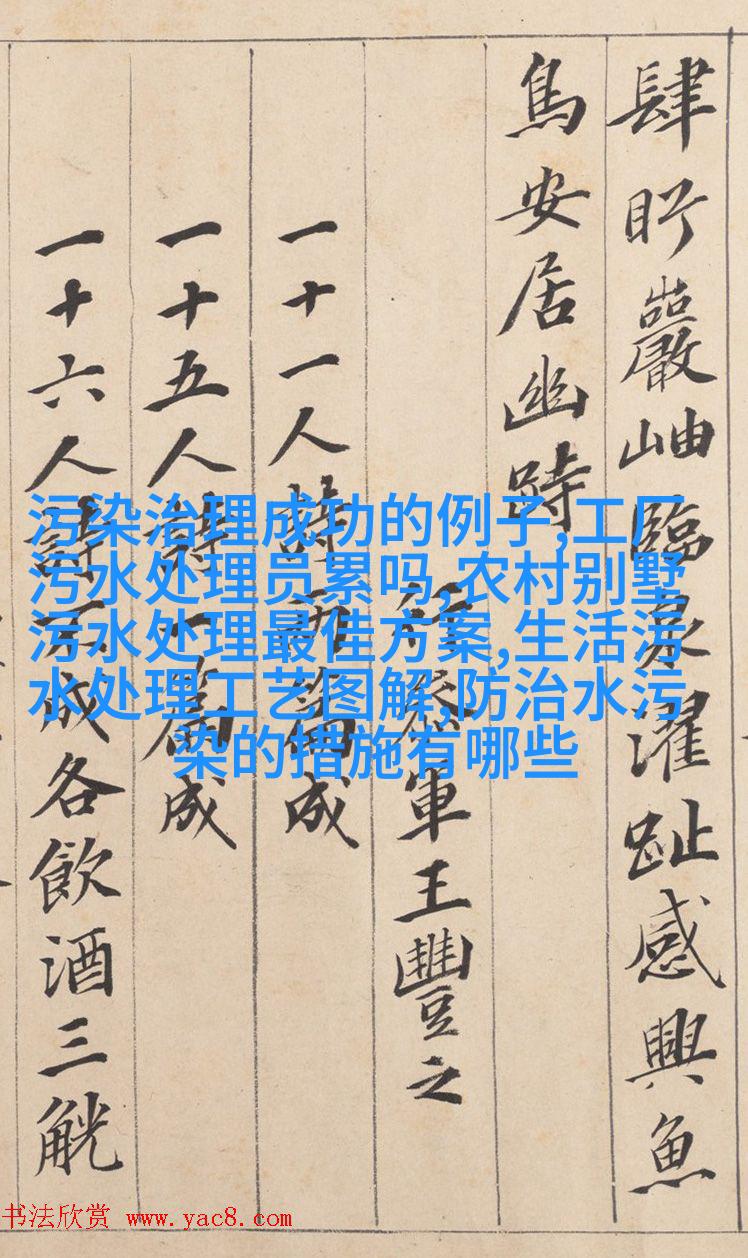 肆眄巖岫臨泉濯趾感興魚
鳥安居幽跱
行參軍王豐之
一十一人詩兩篇成
一十五人詩一篇成
一十六人詩不成各飲酒三觥
污染治理成功的例子,工厂
污水处理员累吗,农村别墅
污水处理最佳方案,生活污
水处理工艺图解,防治水污
染的措施有哪些
书法欣赏 www.yac8.com